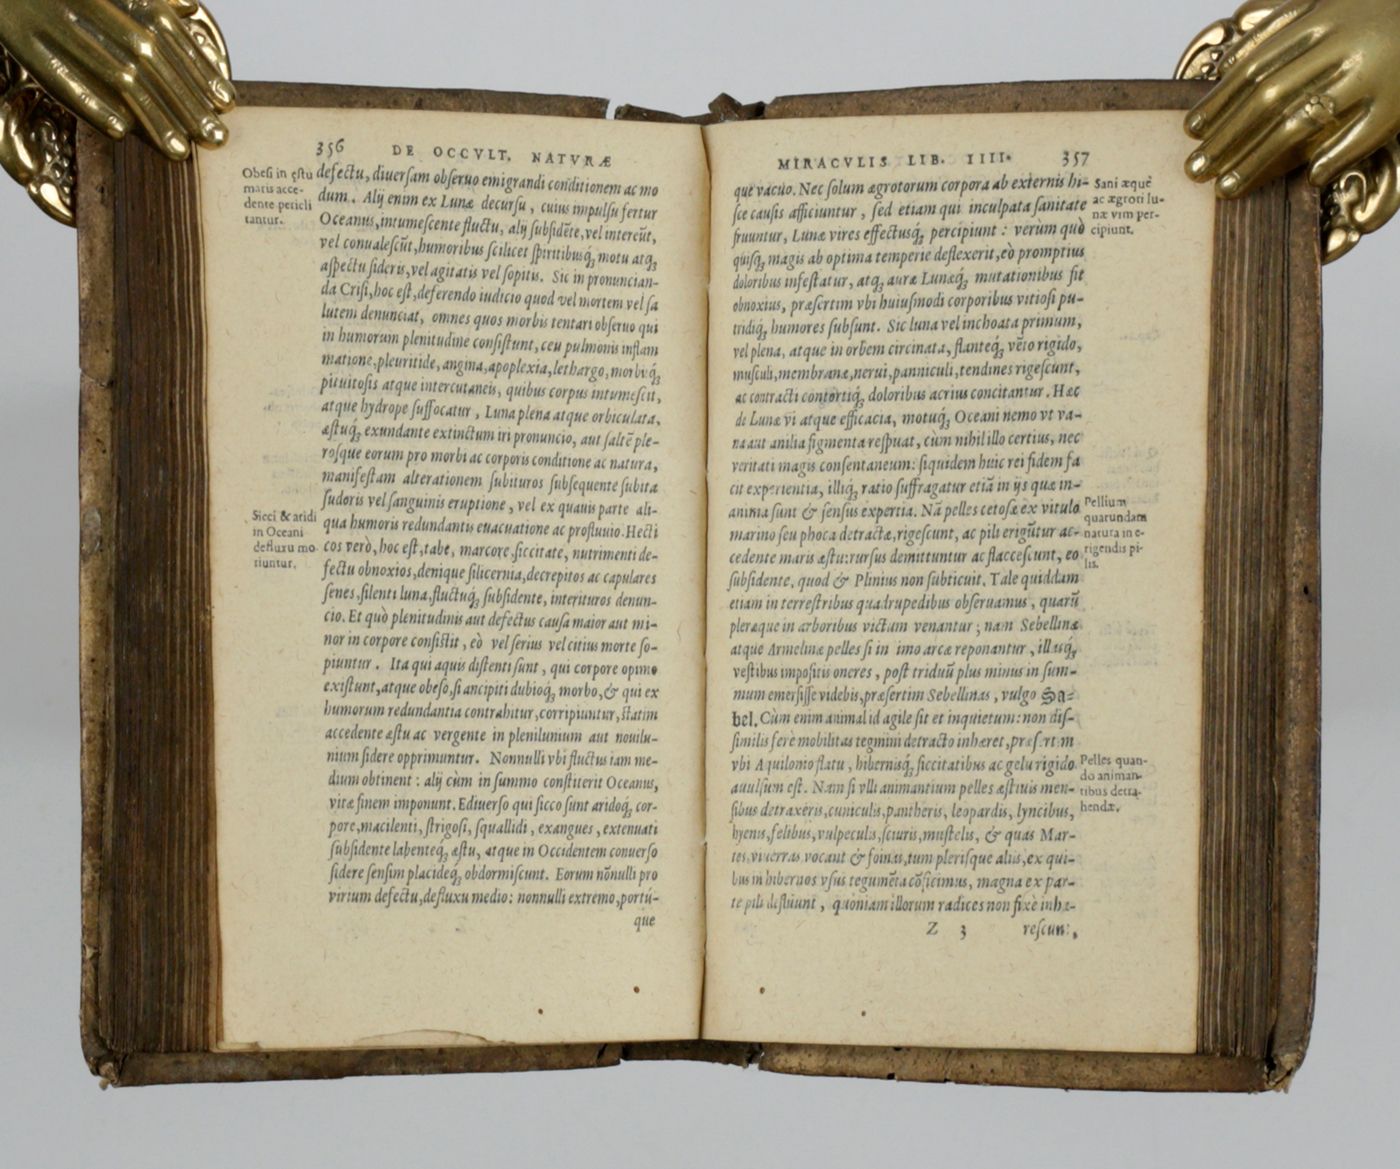 356 DE OCCVLT. NATVRÆ
Obesi in æstu
maris acce-
dente pericli
tantur.
defectu, diuersam obseruo emigrandi conditionem ac mo
dum. Alij enim ex Lunæ decursu, cuius impulsu fertur
Oceanus, intumescente fluctu, alij subsidẽte, vel intereũt,
vel conualescũt, humoribus scilicet spiritibusq́; motu atq;
aspectu sideris, vel agitatis vel sopitis. Sic in pronuncian-
da Crisi, hoc est, deferendo iudicio quod vel mortem vel sa
lutem denunciat, omnes quos morbis tentari obseruo qui
in humorum plenitudine consistunt, ceu pulmonis inflam
matione, pleuritide, angina, apoplexia, lethargo, morbisq́;
pituitosis atque intercutaneis, quibus corpus intumescit,
atque hydrope suffocatur, Luna plena atque orbiculata,
æstuq́; exundante extinctum iri pronuncio, aut saltẽ ple-
rosque eorum pro morbi ac corporis conditione ac natura,
manifestam alterationem subituros subsequente subita
sudoris vel sanguinis eruptione, vel ex quauis parte ali-
qua humoris redundantis euacuatione ac profluuio. Hecti
Sicci & aridi
in Oceani
defluxu mo-
riuntur.
cos verò, hoc est, tabe, marcore, siccitate, nutrimenti de-
fectu obnoxios, denique silicernia, decrepitos ac capulares
senes, silenti luna, fluctuq́; subsidente, interituros denun-
cio. Et quò plenitudinis aut defectus causa maior aut mi-
nor in corpore consistit, eò vel serius vel citius morte so-
piuntur. Ita qui aquis distenti sunt, qui corpore opimo
existunt, atque obeso, si ancipiti dubioq́; morbo, & qui ex
humorum redundantia contrahitur, corripiuntur, statim
accedente æstu ac vergente in plenilunium aut nouilu-
nium sidere opprimuntur. Nonnulli vbi fluctus iam me-
dium obtinent: alij cùm in summo constiterit Oceanus,
vitæ finem imponunt. Ediuerso qui sicco sunt aridoq́; cor-
pore, macilenti, strigosi, squallidi, exangues, extenuati
subsidente labenteq́; æstu, atque in Occidentem conuerso
sidere sensim placideq́; obdormiscunt. Eorum nõnulli pro
virium defectu, defluxu medio: nonnulli extremo, portú-
que
MIRACVLIS LIB. IIII. 357
que vacuo. Nec solum ægrotorum corpora ab externis hi-
sce causis afficiuntur, sed etiam qui inculpata sanitate
fruuntur, Lunæ vires effectusq́; percipiunt: verum quò
Sani æquè
ac ægroti lu-
næ vim per-
cipiunt.
quisq; magis ab optima temperie deflexerit, eò promptius
doloribus infestatur, atq; auræ Lunæq́; mutationibus fit
obnoxius, præsertim vbi huiusmodi corporibus vitiosi pu-
tridiq́; humores subsunt. Sic luna vel inchoata primum,
vel plena, atque in orbem circinata, flanteq́; vẽto rigido,
musculi, membranæ, nerui, panniculi, tendines rigescunt,
ac contracti contortiq́; doloribus acrius concitantur. Hæc
de Lunæ vi atque efficacia, motuq́; Oceani nemo vt va-
na aut anilia figmenta respuat, cùm nihil illo certius, nec
veritati magis consentaneum: siquidem huic rei fidem fa
cit experientia, illiq́; ratio suffragatur etiã in ijs quæ in-
anima sunt & sensus expertia. Nã pelles cetosæ ex vitulo
marino seu phoca detractæ, rigescunt, ac pili erigũtur ac-
cedente maris æstu: rursus demittuntur ac flaccescunt, eo
Pellium
quarundam
natura in e-
rigendis pi-
lis.
subsidente, quod & Plinius non subticuit. Tale quiddam
etiam in terrestribus quadrupedibus obseruamus, quarũ
pleræque in arboribus victam venantur; nam Sebellinæ
atque Armelinæ pelles si in imo arcæ reponantur, illisq́;
vestibus impositis oneres, post triduũ plus minus in sum-
mum emersisse videbis, præsertim Sebellinas, vulgo Sa-
bel. Cùm enim animal id agile sit et inquietum: non dis-
similis ferè mobilitas tegmini detracto inhæret, præsertim
vbi Aquilonio flatu, hibernisq́; siccitatibus ac gelu rigido
auulsum est. Nam si vlli animantium pelles æstiuis men-
sibus detraxeris, cuniculis, pantheris, leopardis, lyncibus,
Pelles quan-
do animan-
tibus detra-
hendæ.
hyenis, felibus, vulpeculis, sciuris, mustelis, & quas Mar-
tes, viuerras vocant & foinas, tum plerisque aliis, ex qui-
bus in hibernos vsus tegumẽta cõficimus, magna ex par-
te pili defluunt, quoniam illorum radices non fixè inhæ-
Z 3 rescunt,